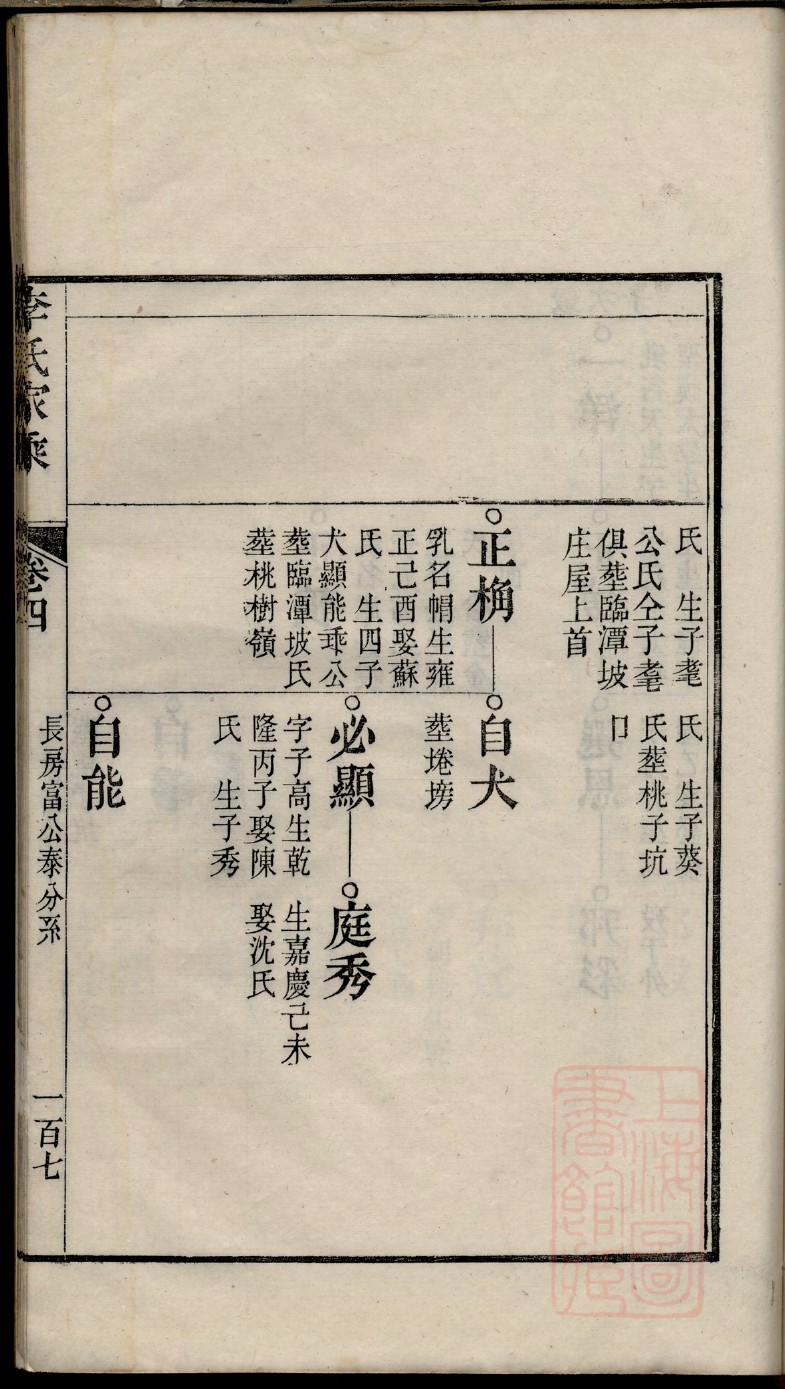 氏　生子耄
公氏仝子耄
俱塟臨潭坡
庄屋上首
氏　生子葵
氏塟桃子坑
卩
正桷
乳名帽生雍
正己酉娶蘇
氏　生四子
犬顯能乖公
塟臨潭坡氏
塟桃樹嶺
自犬
塟埢塝
必顯
字子高生乾
隆丙子娶陳
氏　生子秀
庭秀
生嘉慶己未
娶沈氏
自能
李氏家乘
卷四
長房富公泰分系
一百七
上海圖
書館藏